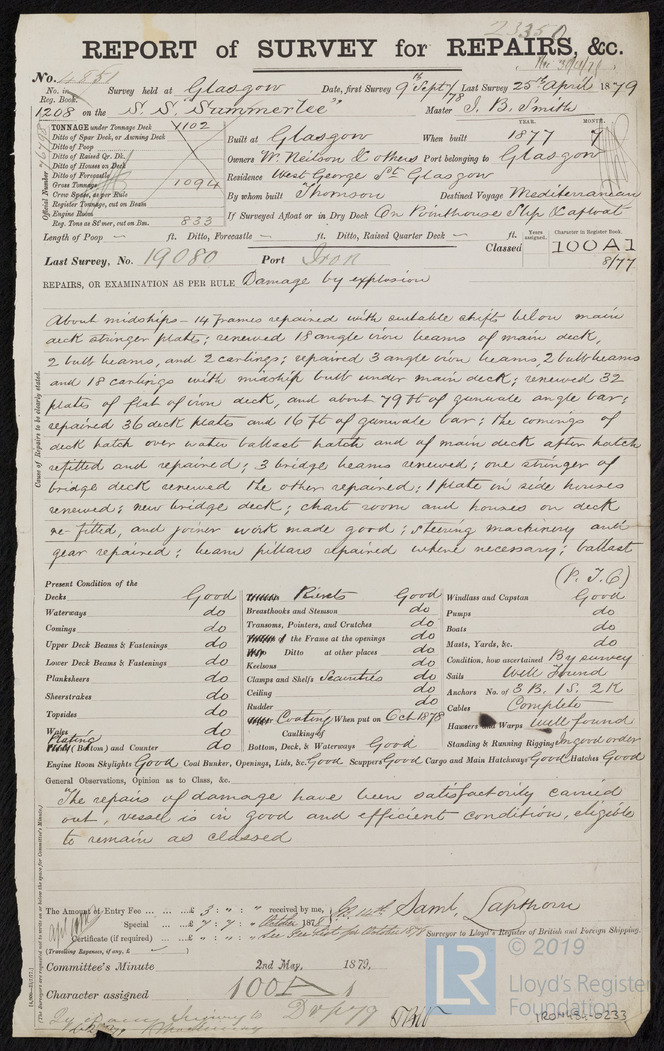 23350
REPORT of SURVEY for REPAIRS, &c.
No. 4851
No. in Reg. Book.
Survey held at Glasgow Date, first Survey 9th Sept/78 Last Survey 25th April 1879
1208 on the S. S. "Summerlee" Master J. B. Smith
Official Number
TONNAGE under Tonnage Deck 1102
Ditto of Spar Deck, or Awning Deck
Ditto of Poop
Ditto of Raised Qr. Dk.
Ditto of Houses on Deck
Ditto of Forecastle
Gross Tonnage 1094
Crew Space, as per Rule
Register Tonnage, cut on Beam
Engine Room
Reg. Tons as St'mer, cut on Bm. 833
Built at Glasgow When built YEAR. 1877 MONTH. 7
Owners W. Neilson & others Port belonging to Glasgow
Residence West George St Glasgow
By whom built Thomson Destined Voyage Mediterranean
If Surveyed Afloat or in Dry Dock On Pointhouse Slip & afloat
Length of Poop — ft. Ditto, Forecastle — ft. Ditto, Raised Quarter Deck — ft.
Classed Years assigned. Character in Register Book. 100A1
8/77
Last Survey, No. 19080 Port Iron
REPAIRS, OR EXAMINATION AS PER RULE Damage by explosion
Cause of Repairs to be clearly stated.
About midships – 14 frames repaired with suitable shifts below main
deck stringer plate; renewed 18 angle iron beams of main deck,
2 bulb beams, and 2 carlings; repaired 3 angle iron beams, 2 bulb beams
and 18 carlings with midship bulb under main deck; renewed 32
plates of flat of iron deck, and about 79 ft of gunwale angle bar;
repaired 36 deck plates and 16 ft of gunwale bar; the comings of
deck hatch over water ballast hatch and of main deck after hatch
refitted and repaired; 3 bridge beams renewed; one stringer of
bridge deck renewed the other repaired; 1 plate in side houses
renewed; new bridge deck; chart room and houses on deck
re-fitted, and joiner work made good; steering machinery and
gear repaired; beam pillars repaired where necessary; ballast
(P. T. O)
Present Condition of the
Decks Good
Waterways do
Comings do
Upper Deck Beams & Fastenings do
Lower Deck Beams & Fastenings do
Planksheers do
Sheerstrakes do
Topsides do
Wales do
Plating (Bottom) and Counter do
Rivets Good
Breasthooks and Stemson do
Transoms, Pointers, and Crutches do
of the Frame at the openings do
Ditto at other places do
Keelsons do
Clamps and Shelfs Securities do
Ceiling do
Rudder do
Coating When put on Oct 1878
Caulking of
Bottom, Deck, & Waterways Good
Windlass and Capstan Good
Pumps do
Boats do
Masts, Yards, &c. do
Condition, how ascertained By survey
Sails Well Found
Anchors No. of 3 B. 1 S. 2 K
Cables Complete
Hawsers and Warps Well found
Standing & Running Rigging In good order
Engine Room Skylights Good Coal Bunker, Openings, Lids, &c. Good Scuppers Good Cargo and Main Hatchways Good Hatches Good
General Observations, Opinion as to Class, &c.
The repairs of damage have been satisfactorily carried
out, vessel is in good and efficient condition, eligible
to remain as classed
The Amount of Entry Fee ... £ 3 : " : " received by me,
Saml. Lapthorn
Special ... £ 7 : 7 : " October 1878
Certificate (if required) ... £ " : " : "
Surveyor to Lloyd's Register of British and Foreign Shipping.
(Travelling Expenses, if any, £ )
Committee's Minute 2nd May, 1879.
Character assigned 100A1
© 2019
LR
Lloyd's Register
Foundation
IRON434-0233